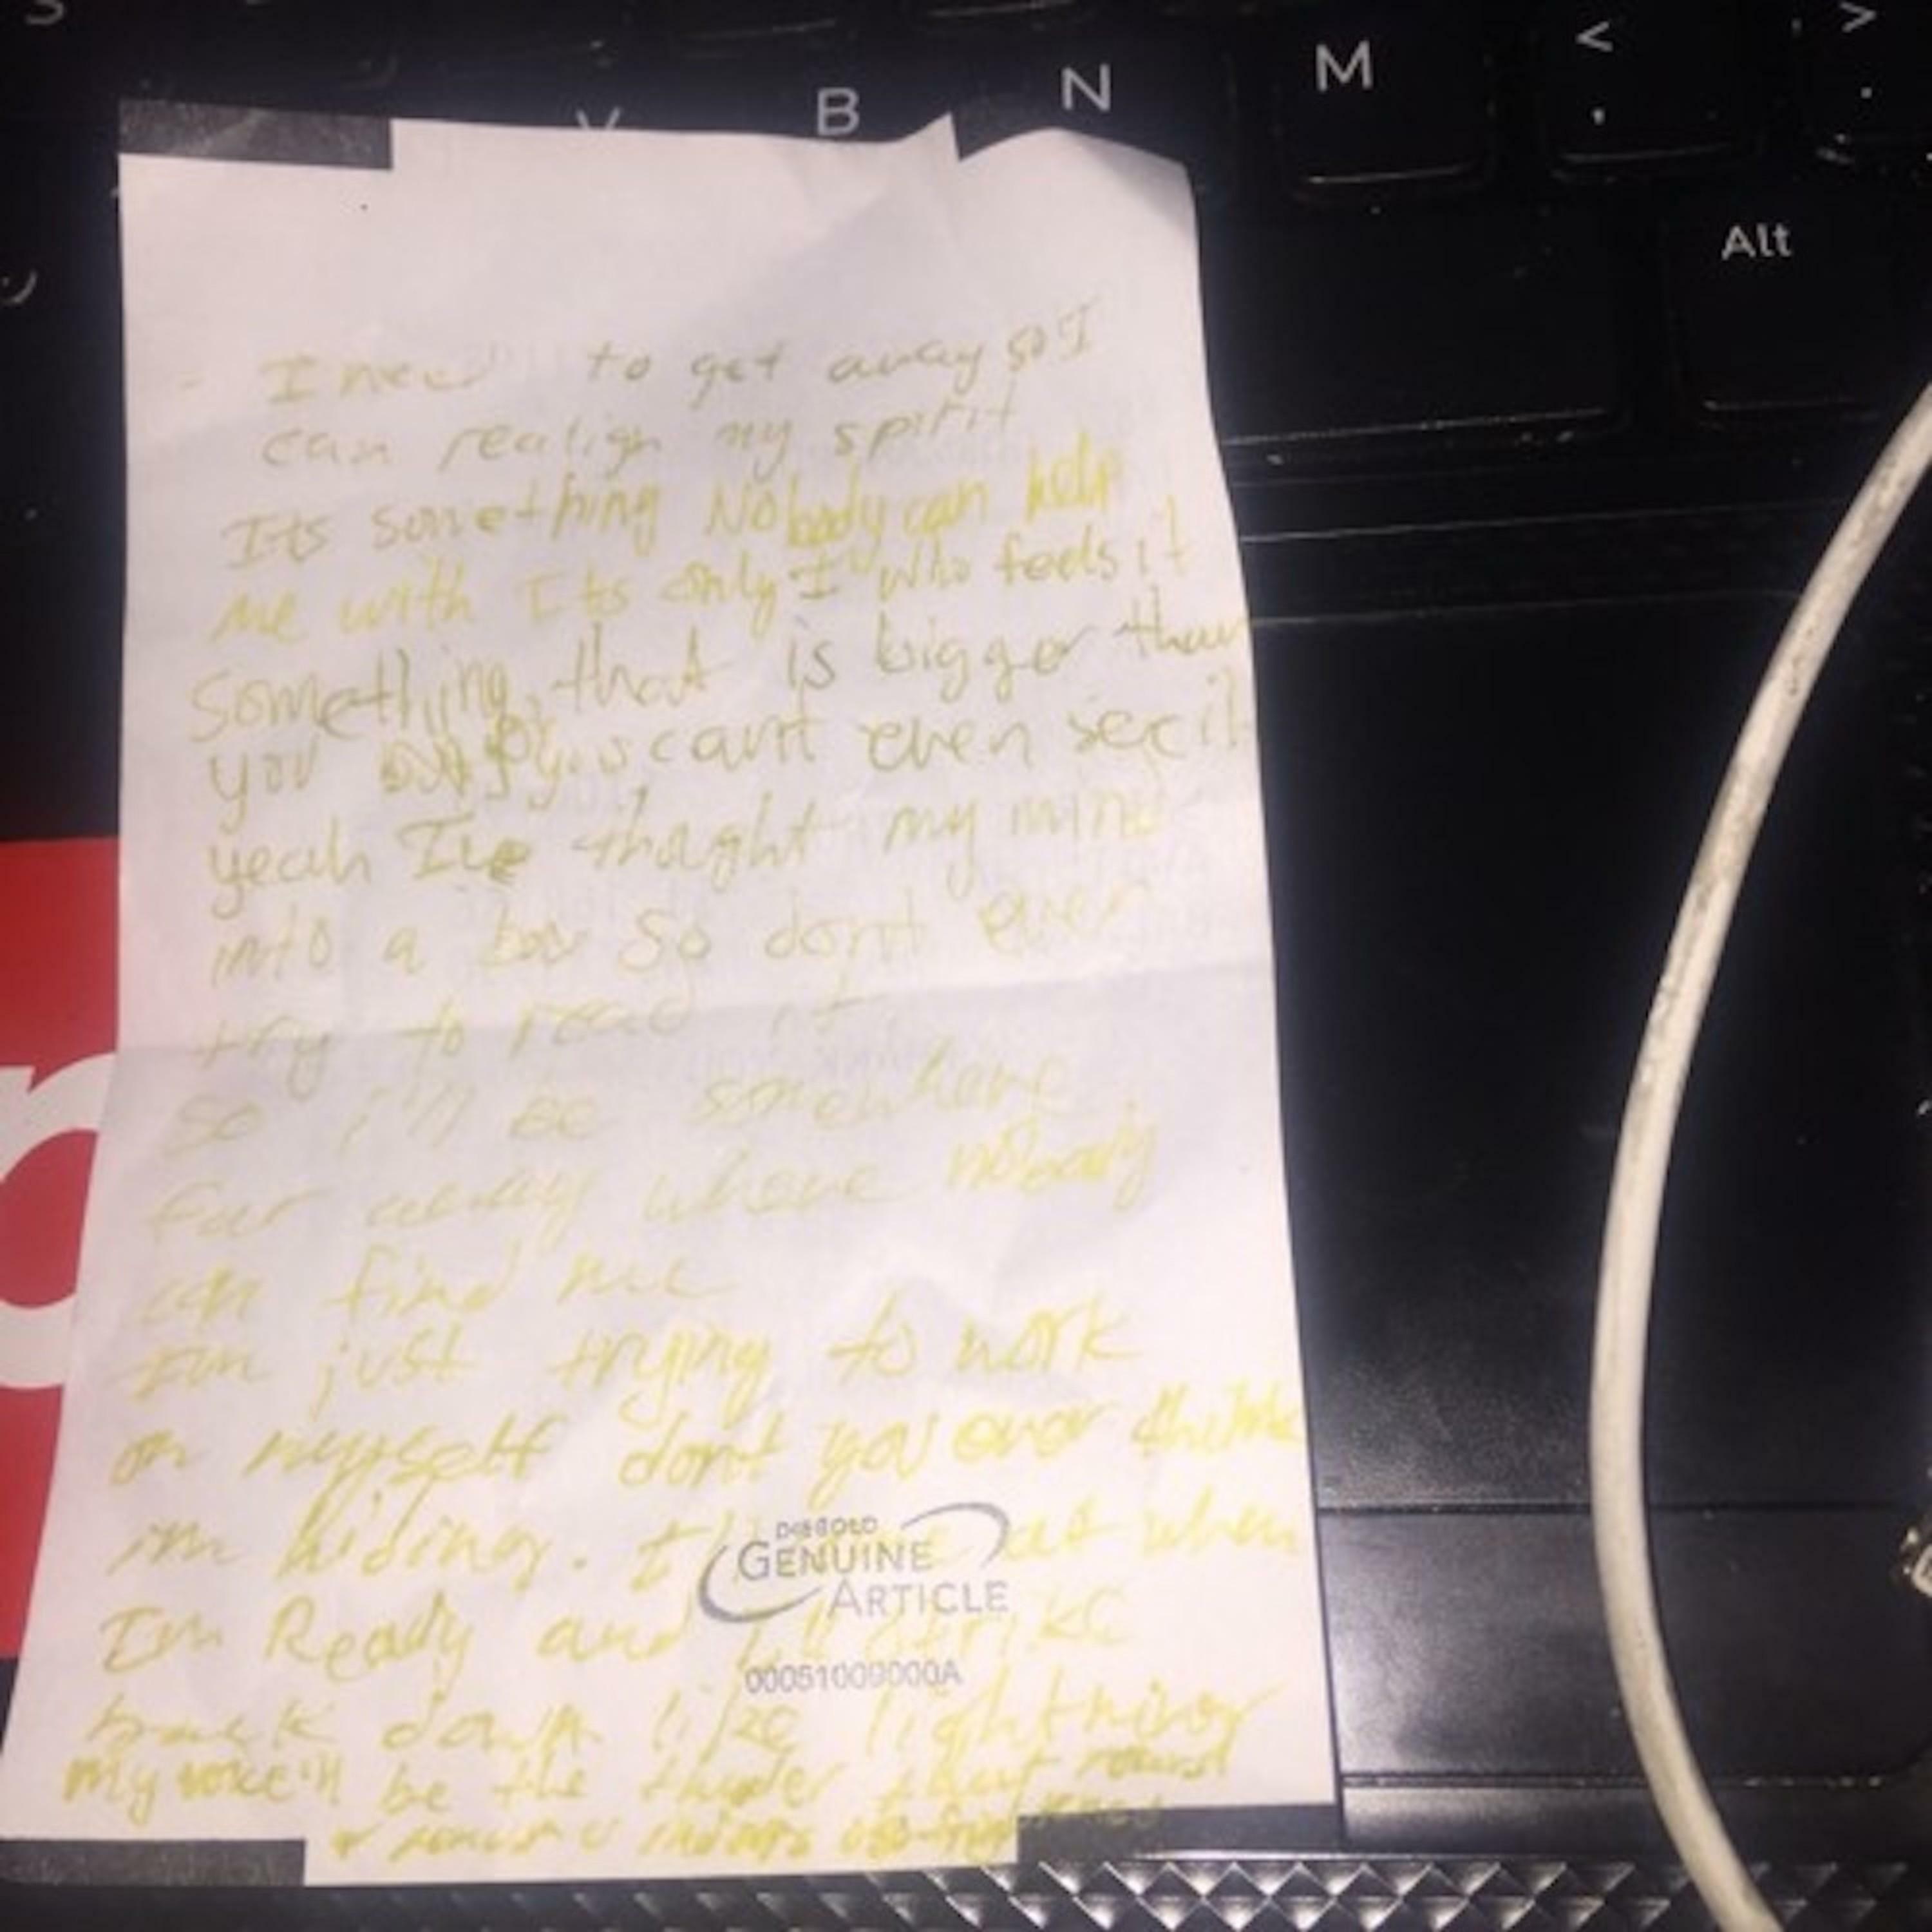 B N M < >
, .
Alt
I need to get away so I
can realign my spirit
Its something Nobody can help
me with Its only I who feels it
Something that is bigger than
you you cant even see it
yeah I've thought my mind
into a box so dont ever
try to read it
so i'll be somewhere
far away where nobody
can find me
Im just trying to work
on myself dont you ever think
im hiding. at when
Im Ready and I'll strike
back down like lightning
My voice'll be the thunder that
DIEBOLD
GENUINE
ARTICLE
00051009000A